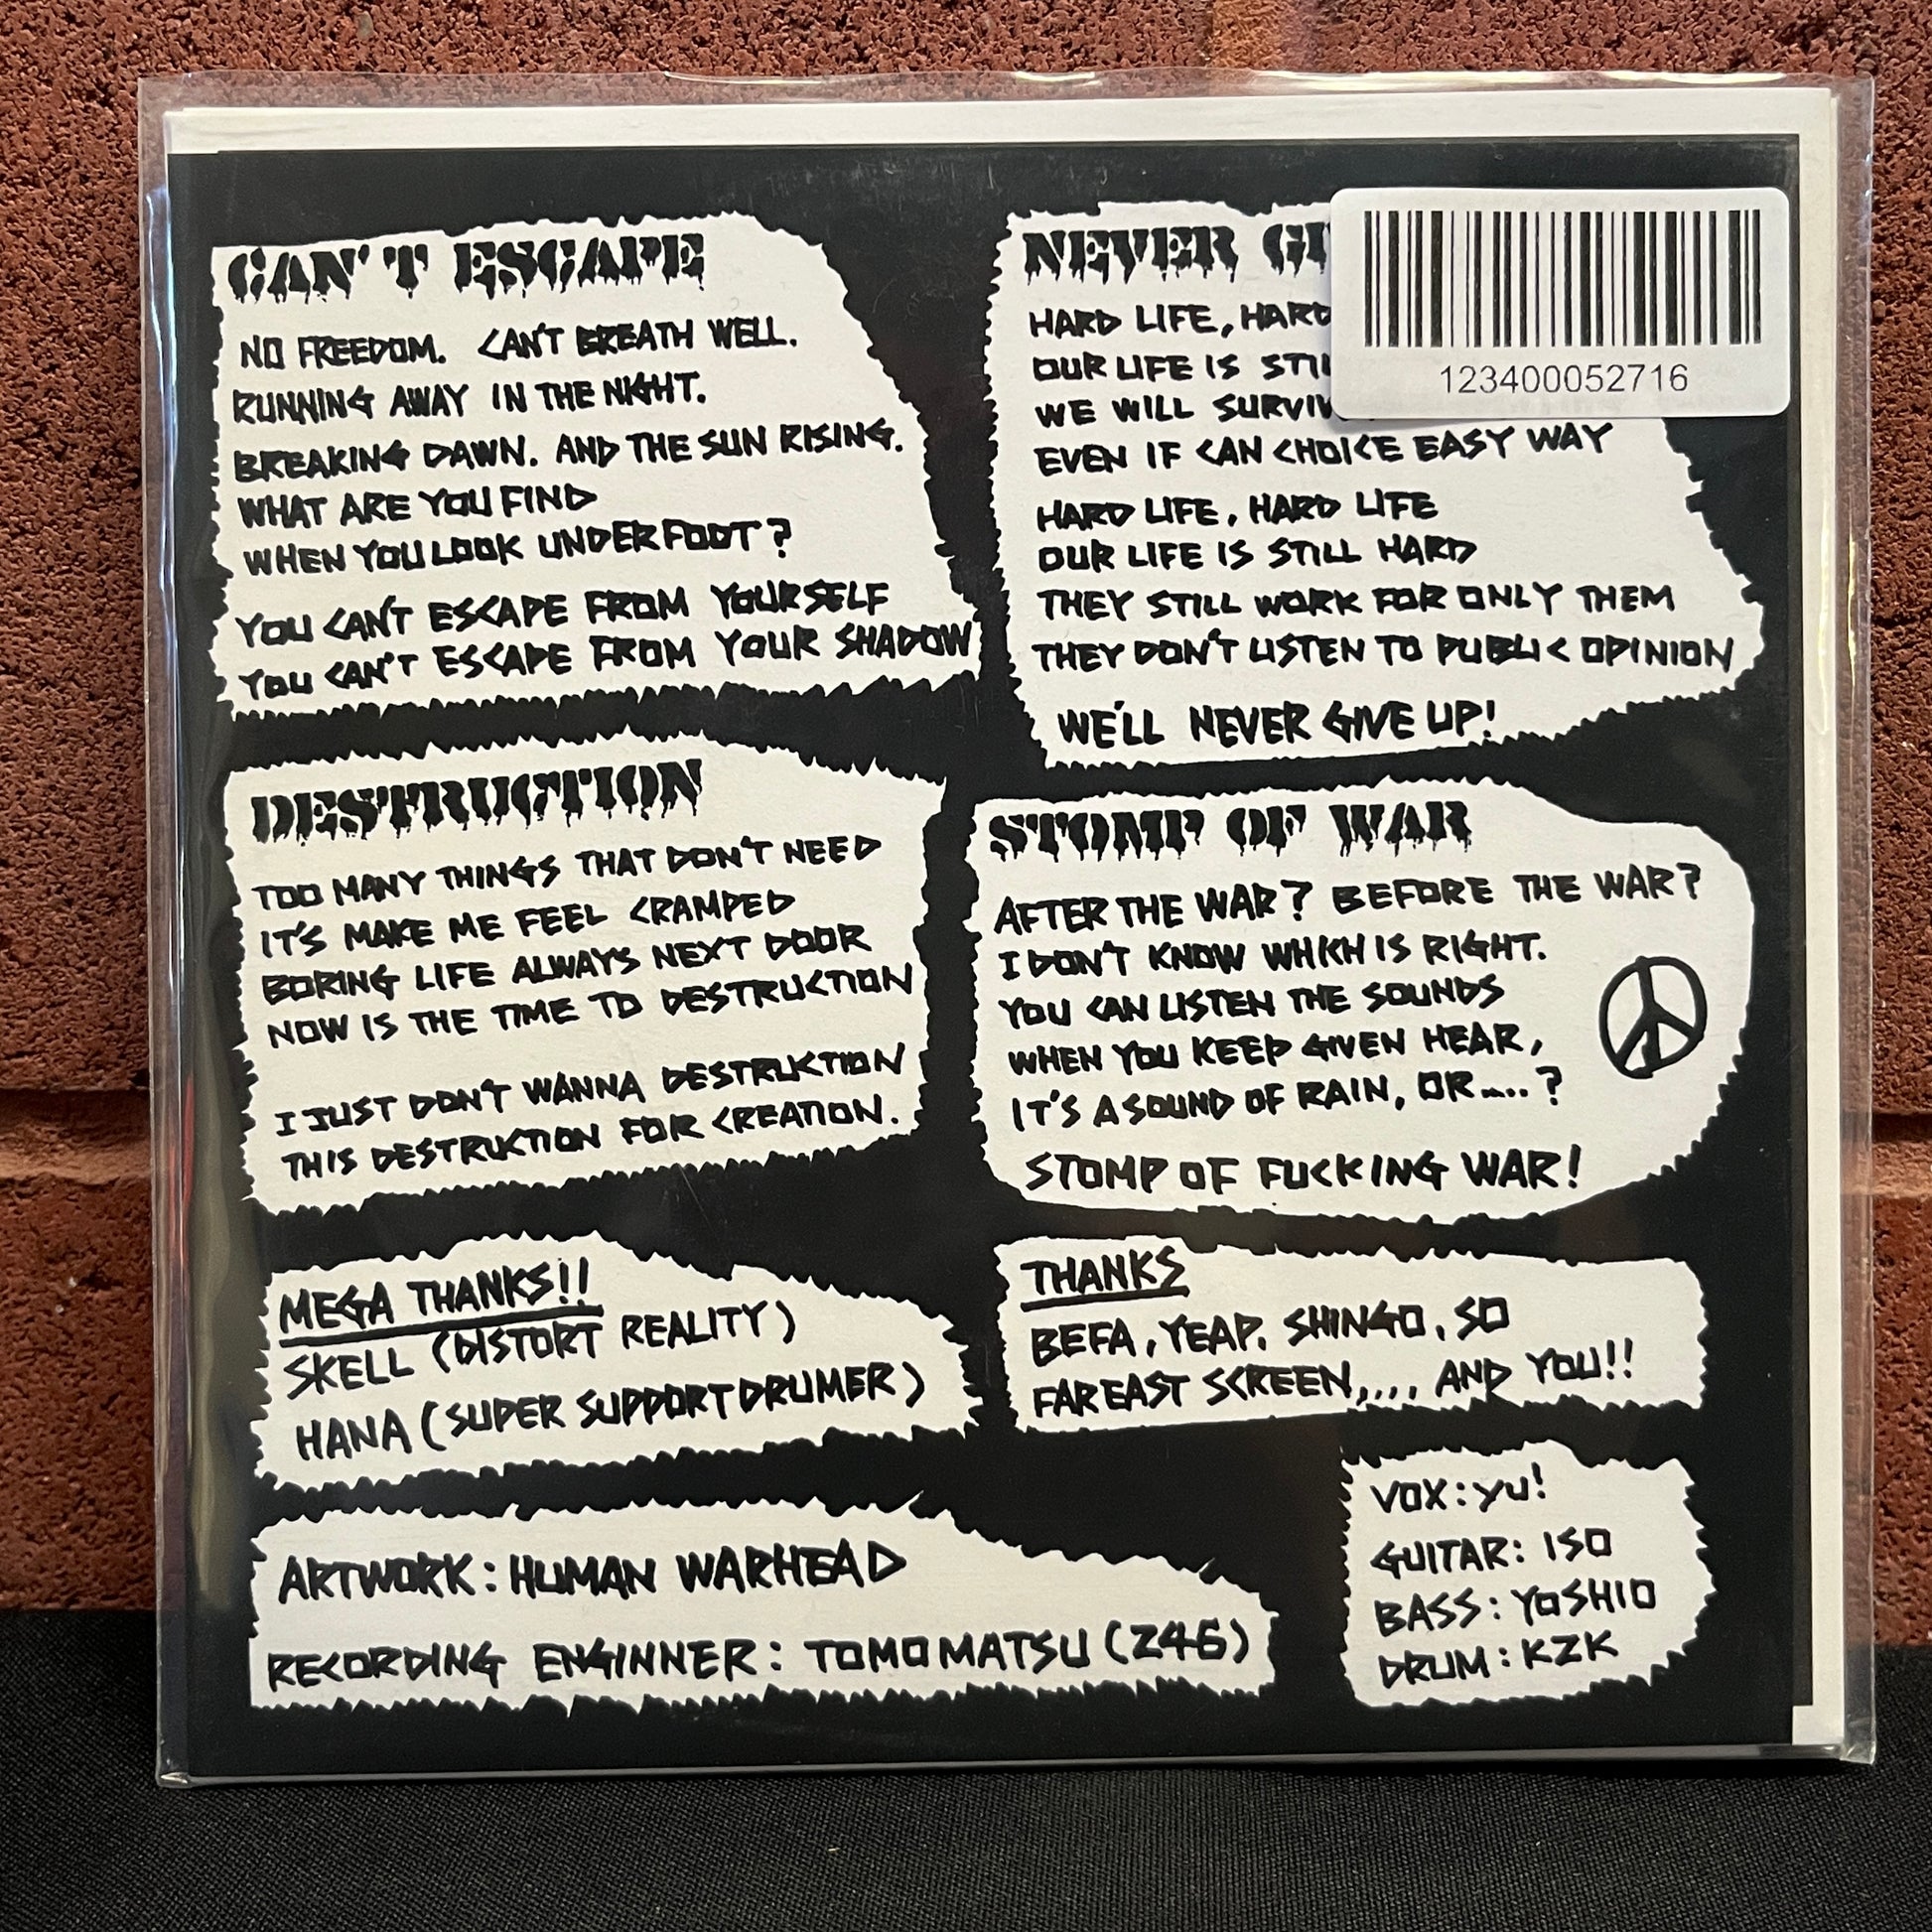 CAN'T ESCAPE
NO FREEDOM. CAN'T BREATH WELL.
RUNNING AWAY IN THE NIGHT.
BREAKING DAWN. AND THE SUN RISING.
WHAT ARE YOU FIND
WHEN YOU LOOK UNDERFOOT?
YOU CAN'T ESCAPE FROM YOURSELF
YOU CAN'T ESCAPE FROM YOUR SHADOW
NEVER
HARD LIFE, HARD
OUR LIFE IS
WE WILL
EVEN IF CAN CHOICE EASY WAY
HARD LIFE, HARD LIFE
OUR LIFE IS STILL HARD
THEY STILL WORK FOR ONLY THEM
THEY DON'T LISTEN TO PUBLIC OPINION
WE'LL NEVER GIVE UP!
123400052716
DESTRUCTION
TOO MANY THINGS THAT DON'T NEED
IT'S MAKE ME FEEL CRAMPED
BORING LIFE ALWAYS NEXT DOOR
NOW IS THE TIME TO DESTRUCTION
I JUST DON'T WANNA DESTRUCTION
THIS DESTRUCTION FOR CREATION.
STOMP OF WAR
AFTER THE WAR? BEFORE THE WAR?
I DON'T KNOW WHICH IS RIGHT.
YOU CAN LISTEN THE SOUNDS
WHEN YOU KEEP GIVEN HEAR,
IT'S A SOUND OF RAIN, OR.....?
STOMP OF FUCKING WAR!
MEGA THANKS!!
SKELL (DISTORT REALITY)
HANA (SUPER SUPPORT DRUMER)
THANKS
BEFA, YEAP, SHINGO, SO
FAR EAST SCREEN,... AND YOU!!
ARTWORK: HUMAN WARHEAD
RECORDING ENGINNER: TOMOMATSU (Z46)
VOX: yu!
GUITAR: ISO
BASS: YOSHIO
DRUM: KZK